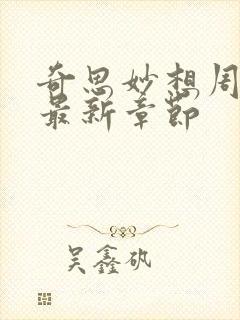 奇思妙想周
最新章节
吴鑫矾